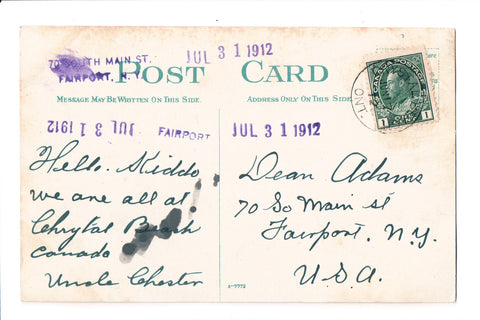 70 SOUTH MAIN ST.
FAIRPORT, N.Y.
JUL 31 1912
POST CARD
MESSAGE MAY BE WRITTEN ON THIS SIDE.
ADDRESS ONLY ON THIS SIDE.
CANADA POSTAGE
1 CENT 1
ONT.
JUL 31 1912
FAIRPORT
JUL 31 1912
Hello. Kiddo
we are all at
Chrytal Beach
Canada
Uncle Chester
Dean Adams
70 So Main st
Fairport, N.Y.
U.S.A.
A-7772